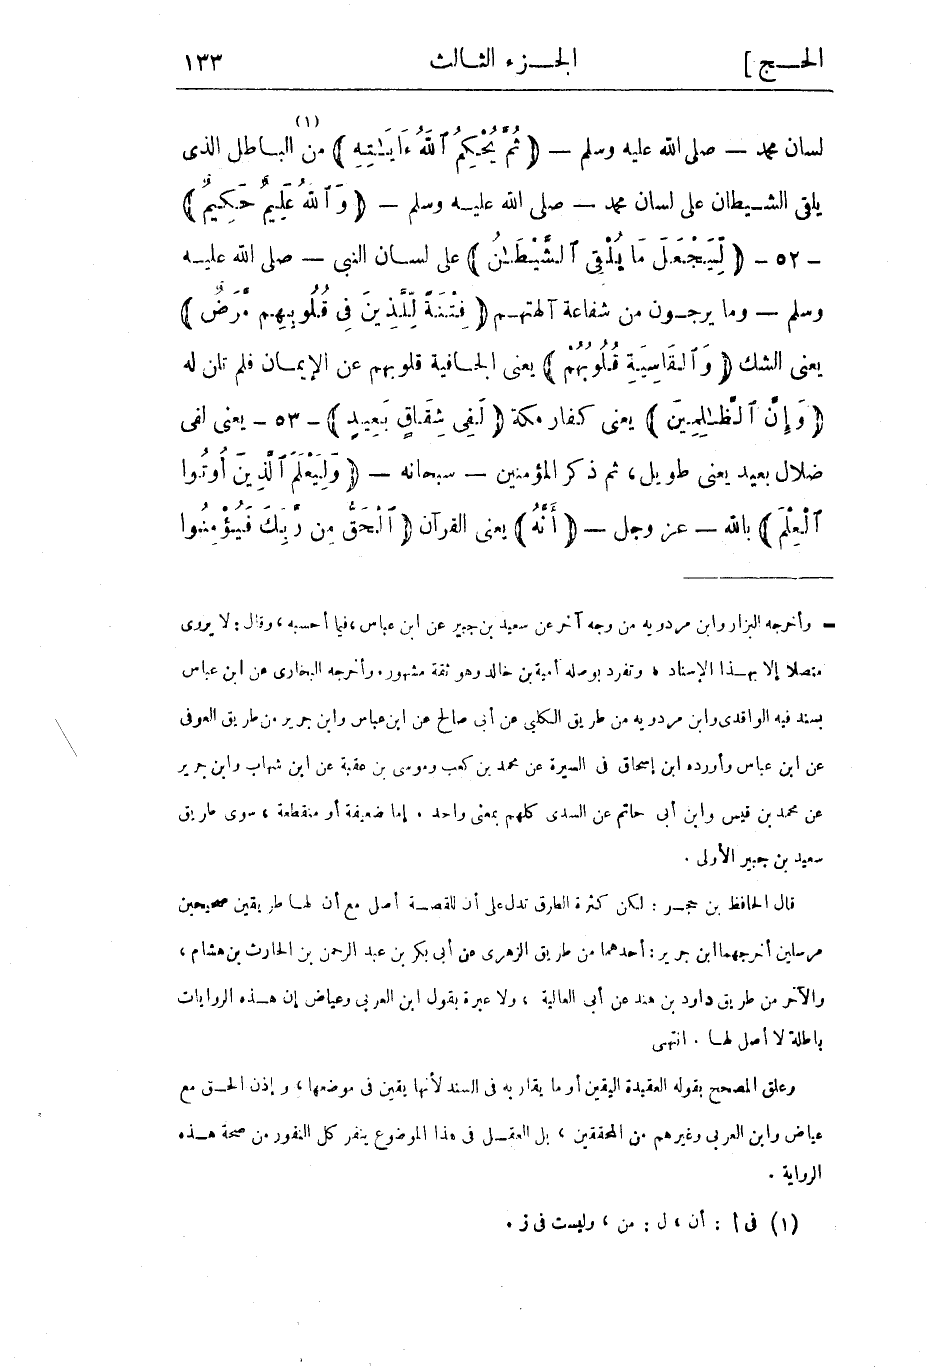 الحـــج ] الجـــزء الثـالث ١٣٣
لسان محمد — صلى الله عليه وسلم — ﴿ ثُمَّ يُحْكِمُ ٱللَّهُ ءَايَـٰتِهِ ﴾ من (١) البـاطل الذى
يلقى الشـيطان على لسان محمد — صلى الله عليـه وسلم — ﴿ وَٱللَّهُ عَلِيمٌ حَكِيمٌ ﴾
- ٥٢ - ﴿ لِّيَجْعَلَ مَا يُلْقِى ٱلشَّيْطَـٰنُ ﴾ على لسـان النبى — صلى الله عليـه
وسلم — وما يرجـون من شفاعة آلهتهـم ﴿ فِتْنَةً لِّلَّذِينَ فِى قُلُوبِهِم مَّرَضٌ ﴾
يعنى الشك ﴿ وَٱلْقَاسِيَةِ قُلُوبُهُمْ ﴾ يعنى الجـافية قلوبهم عن الإيمـان فلم تلن له
﴿ وَإِنَّ ٱلظَّـٰلِمِينَ ﴾ يعنى كفار مكة ﴿ لَفِى شِقَاقٍ بَعِيدٍ ﴾ - ٥٣ - يعنى لفى
ضلال بعيد يعنى طويل، ثم ذكر المؤمنين — سبحانه — ﴿ وَلِيَعْلَمَ ٱلَّذِينَ أُوتُوا
ٱلْعِلْمَ ﴾ بالله — عز وجل — ﴿ أَنَّهُ ﴾ يعنى القرآن ﴿ ٱلْحَقُّ مِن رَّبِّكَ فَيُؤْمِنُوا
= وأخرجه البزار وابن مردويه من وجه آخر عن سعيد بن جبير عن ابن عباس، فيما أحسبه، وقال: لا يروى
متصلا إلا بهـذا الإسناد، وتفرد بوصله أمية بن خالد وهو ثقة مشهور. وأخرجه البخارى عن ابن عباس
بسند فيه الواقدى وابن مردويه من طريق الكلبى عن أبى صالح عن ابن عباس وابن جرير من طريق العوفى
عن ابن عباس وأورده ابن إسحاق فى السيرة عن محمد بن كعب وموسى بن عقبة عن ابن شهاب وابن جرير
عن محمد بن قيس وابن أبى حاتم عن السدى كلهم بمعنى واحد . إما ضعيفة أو منقطعة، سوى طريق
سعيد بن جبير الأولى .
قال الحافظ بن حجـر : لكن كثرة الطرق تدل على أن للقصـة أصل مع أن لهـا طريقين صحيحين
مرسلين أخرجهما ابن جرير : أحدهما من طريق الزهرى عن أبى بكر بن عبد الرحمن بن الحارث بن هشام،
والآخر من طريق داود بن هند عن أبى العالية ، ولا عبرة بقول ابن العربى وعياض إن هـذه الروايات
باطلة لا أصل لهـا . انتهى
وعلق المصحح بقوله العقيدة اليقين أو ما يقاربه فى السند لأنها يقين فى موضعها، و إذن الحـق مع
عياض وابن العربى وغيرهم من المحققين ، بل العقـل فى هذا الموضوع ينفر كل النفور من صحة هـذه
الرواية .
(١) فى أ : أن ، ل : من ، وليست فى ز .